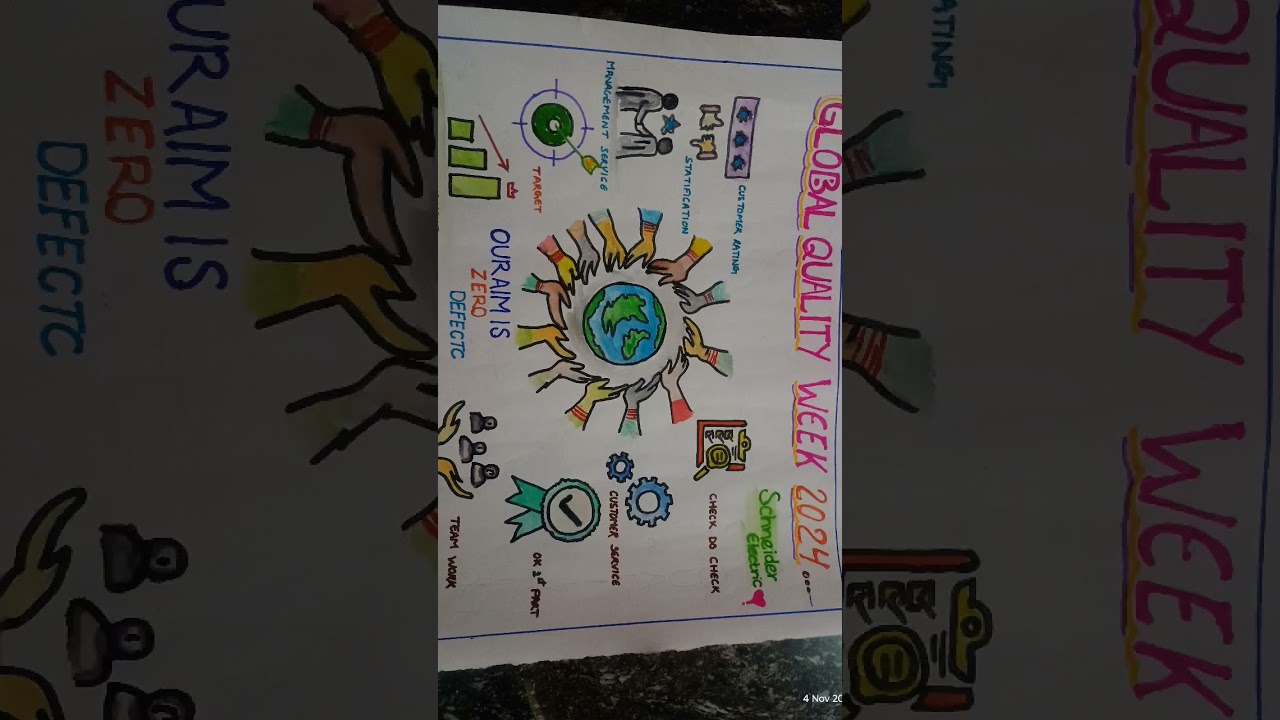 GLOBAL QUALITY WEEK 2024...
Schneider
Electric
CUSTOMER RATING
STATIFICATION
MANAGEMENT SERVICE
TARGET
OUR AIM IS
ZERO
DEFECTC
CHECK DO CHECK
CUSTOMER SERVICE
OK 1st PART
TEAM WORK
4 Nov 20